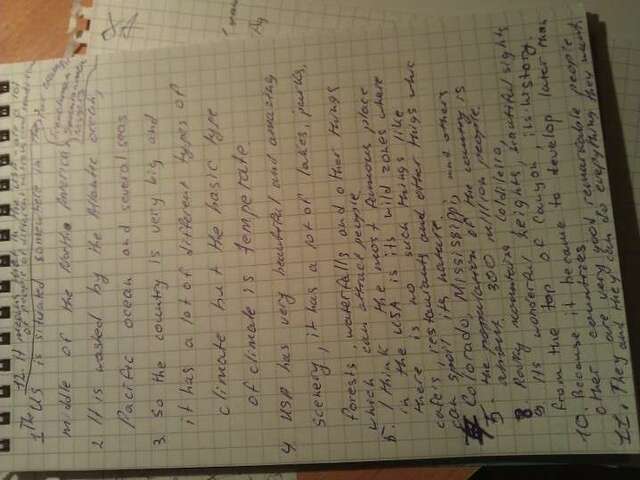 12. It means that
1. The US is situated somewhere in
middle of the North America
2. It is washed by the Atlantic ocean,
Pacific ocean and several seas
3. So the country is very big and
it has a lot of different types of
climate but the basic type
of climate is temperate
4. USA has very beautiful and amazing
scenery, it has a lot of lakes, parks,
forests, waterfalls and other things
which can attract people
5. I think the most famous place
in the USA is its wild zones where
there is no such things like
cafes, restaurants and other things who
can spoil its nature
Colorado, Mississippi, and others
the population of the country is
around 300 million people.
8. Rocky mountains,
9. Its wonderful heights, beautiful sights
from the top of Canyon, its history.
10. Because it became to develop later than
other countries
11. They are very good remarkable people
They and they can do everything they want